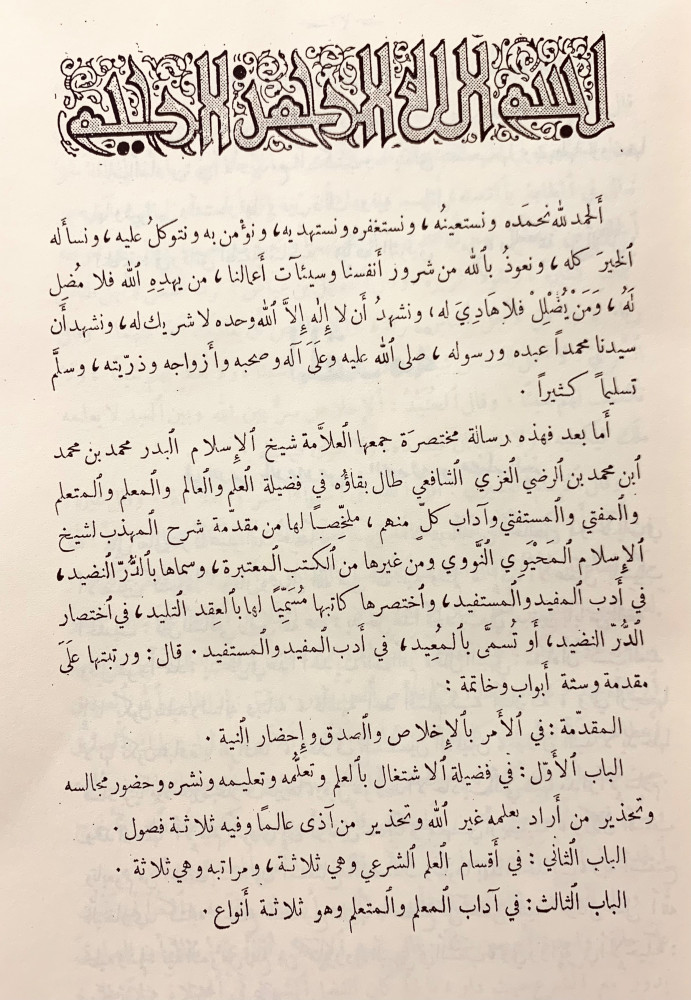 بسم الله الرحمن الرحيم
ٱلحمد لله نحمَده ونستعينُه، ونستغفره ونستهديه، ونؤمن به ونتوكلُ عليه، ونسأله
ٱلخيرَ كله، ونعوذُ بٱلله من شرور أنفسنا وسيئآت أعمالنا، من يهدِهِ ٱلله فلا مُضِل
لَهُ، وَمَنْ يُضْلِلْ فلا هَادِيَ له، ونشهدُ أن لا إِلٰه إِلاَّ ٱلله وحده لا شريك له، ونشهد أن
سيدنا محمداً عبده ورسوله، صلى ٱلله عليه وعلَىٰ آله وصحبه وأزواجه وذرّيته، وسلَّم
تسليماً كثيراً .
أما بعد فهذه رسالة مختصرَة جمعها ٱلعلاَّمة شيخ ٱلإِسلام ٱلبدر محمد بن محمد
ٱبن محمد بن ٱلرضي ٱلغزي ٱلشافعي طال بقاؤُه في فضيلة ٱلعلم وٱلعالم وٱلمعلم وٱلمتعلم
وٱلمفتي وٱلمستفتي وآداب كلٍّ منهم، ملخِّصًا لها من مقدّمة شرح ٱلمهذب لشيخ
ٱلإِسلام ٱلمَحْيَوِي ٱلنَّووي ومن غيرها من ٱلكتب ٱلمعتبرة، وسماها بٱلدُّرّ ٱلنضيد،
في أدب ٱلمفيد وٱلمستفيد، وٱختصرها كاتبها مُسَمِّيًا لها بٱلعِقد ٱلتليد، في ٱختصار
ٱلدُّرّ ٱلنضيد، أو تُسمَّى بٱلمُعِيد، في أدب ٱلمفيد وٱلمستفيد . قال : ورتبتها علَىٰ
مقدمة وستة أبواب وخاتمة :
ٱلمقدّمة : في ٱلأمر بٱلإِخلاص وٱلصدق وإِحضار ٱلنية .
ٱلباب ٱلأوّل : في فضيلة ٱلاشتغال بٱلعلم وتعلُّمه وتعليمه ونشره وحضور مجالسه
وتحذير من أراد بعلمه غير ٱلله وتحذير من آذى عالمًا وفيه ثلاثة فصول .
ٱلباب ٱلثاني : في أقسام ٱلعلم ٱلشرعي وهي ثلاثة، ومراتبه وهي ثلاثة .
ٱلباب ٱلثالث : في آداب ٱلمعلم وٱلمتعلم وهو ثلاثة أنواع .